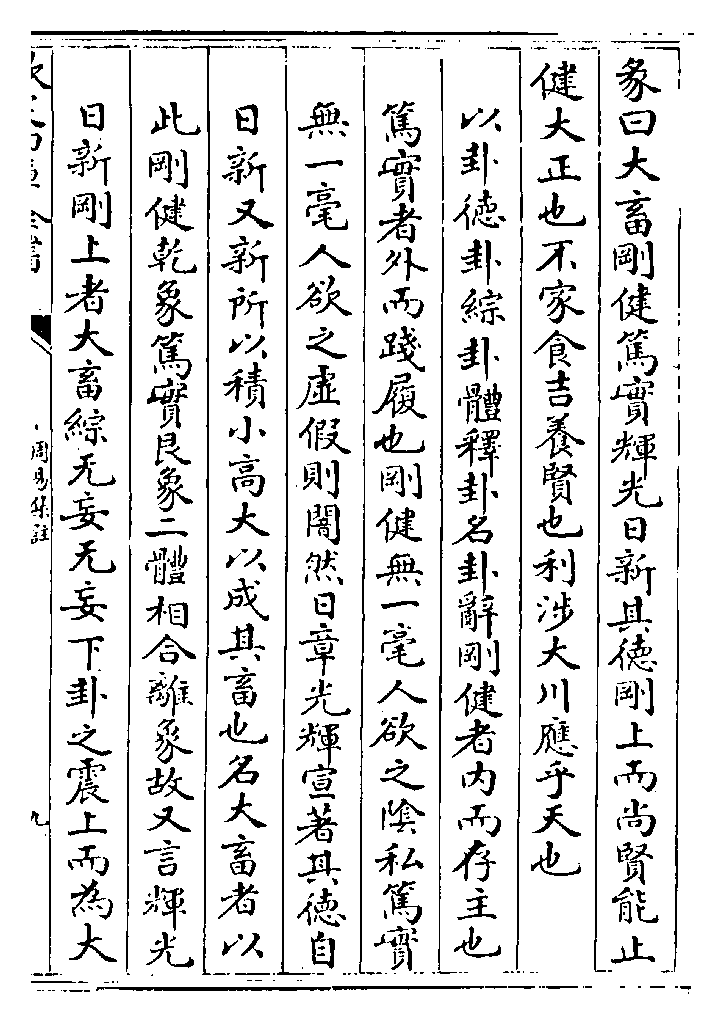 彖曰大畜剛健篤實輝光日新其徳剛上而尚賢能止
健大正也不家食吉養賢也利涉大川應乎天也
以卦徳卦綜卦體釋卦名卦辭剛健者內而存主也
篤實者外而踐履也剛健無一毫人欲之陰私篤實
無一毫人欲之虛假則闇然日章光輝宣著其徳自
日新又新所以積小高大以成其畜也名大畜者以
此剛健乾象篤實艮象二體相合離象故又言輝光
日新剛上者大畜綜无妄无妄下卦之震上而為大
周易集註
九